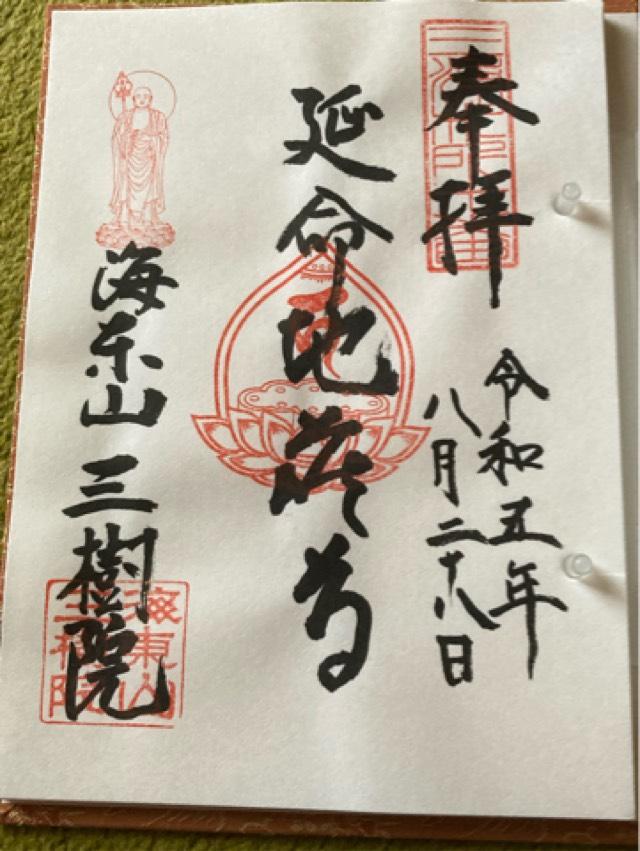 奉拝
令和五年
八月二十八日
延命地蒄尊
海东山 三樹院
海東山
三樹院